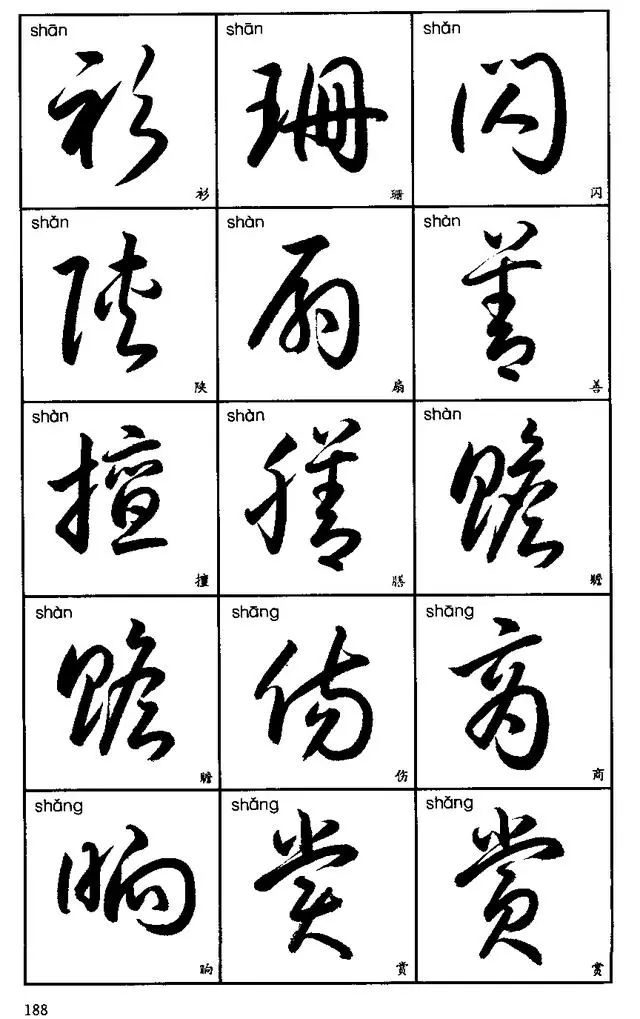 shān shān shǎn
衫 珊 闪
衫 珊 闪
shǎn shàn shàn
陕 扇 善
陕 扇 善
shàn shàn shàn
擅 膳 赡
擅 膳 赡
shàn shāng shāng
赡 伤 商
赡 伤 商
shǎng shǎng shǎng
晌 赏 赏
晌 赏 赏
188